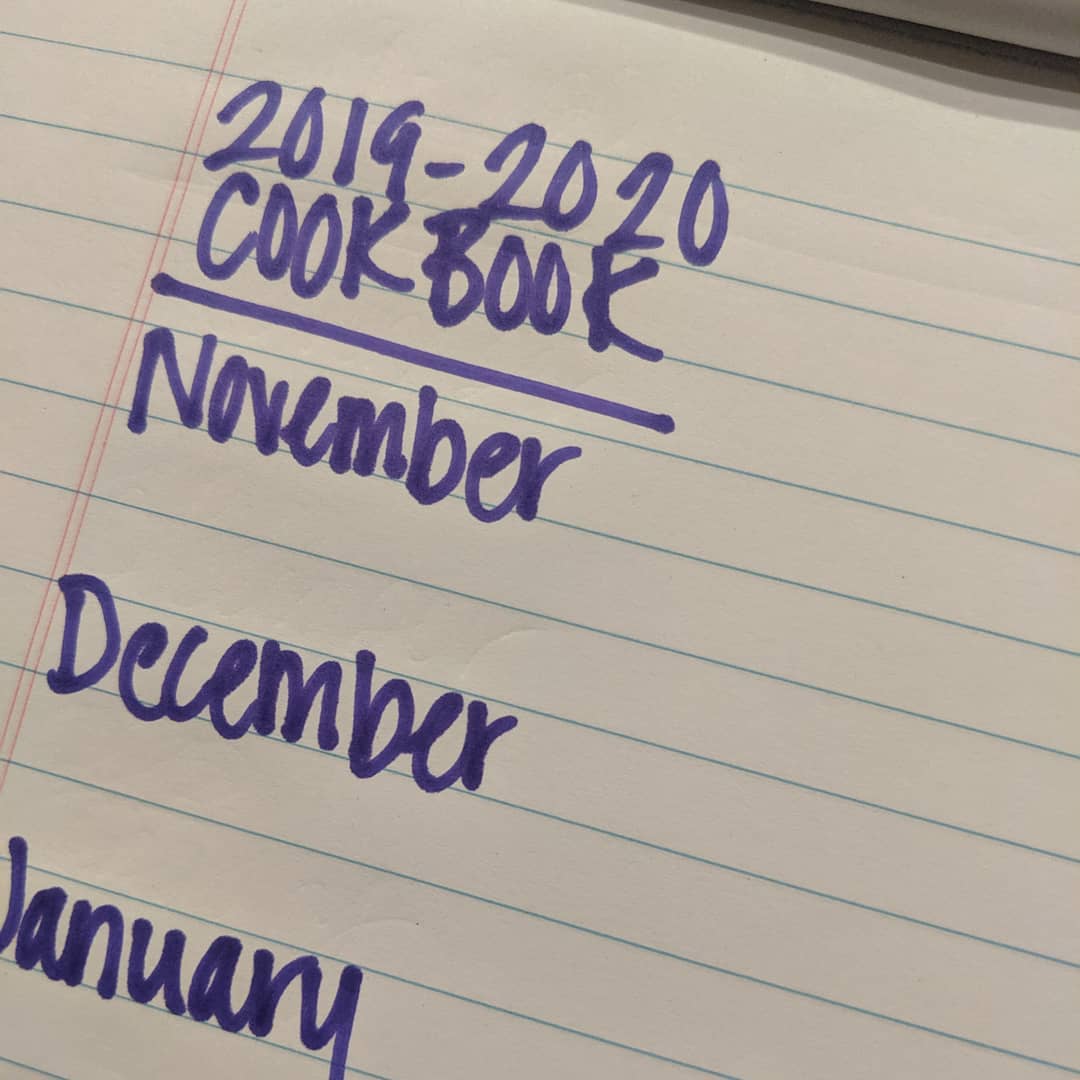 2019-2020
COOKBOOK
November
December
January